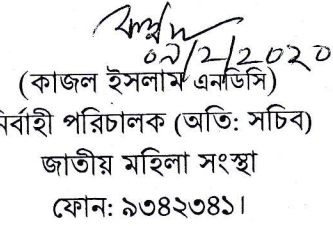 ০৯/2/2020
(কাজল ইসলাম এনডিসি)
নির্বাহী পরিচালক (অতি: সচিব)
জাতীয় মহিলা সংস্থা
ফোন: ৯৩৪২৩৪১।